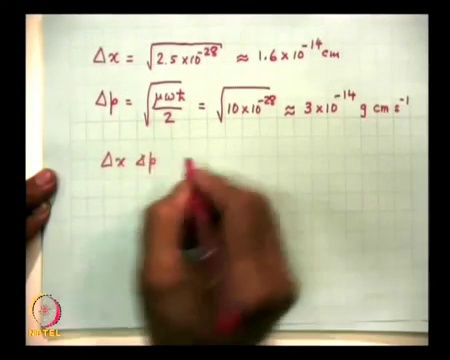 Δx = √2.5×10⁻²⁸ ≈ 1.6×10⁻¹⁴ cm
Δp = √μωħ/2 = √10×10⁻²⁸ ≈ 3×10⁻¹⁴ g cm s⁻¹
Δx Δp
NPTEL